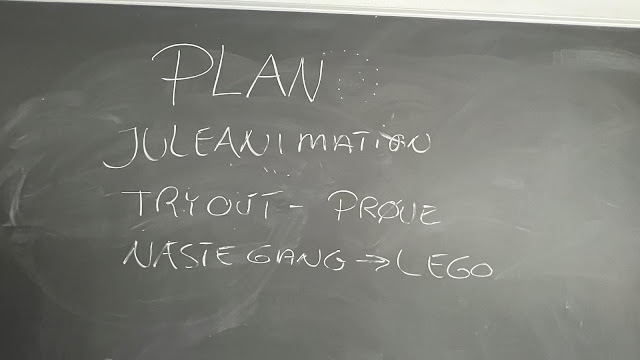 PLAN
JULEANIMATION
TRYOUT - PRØVE
NÆSTE GANG → LEGO